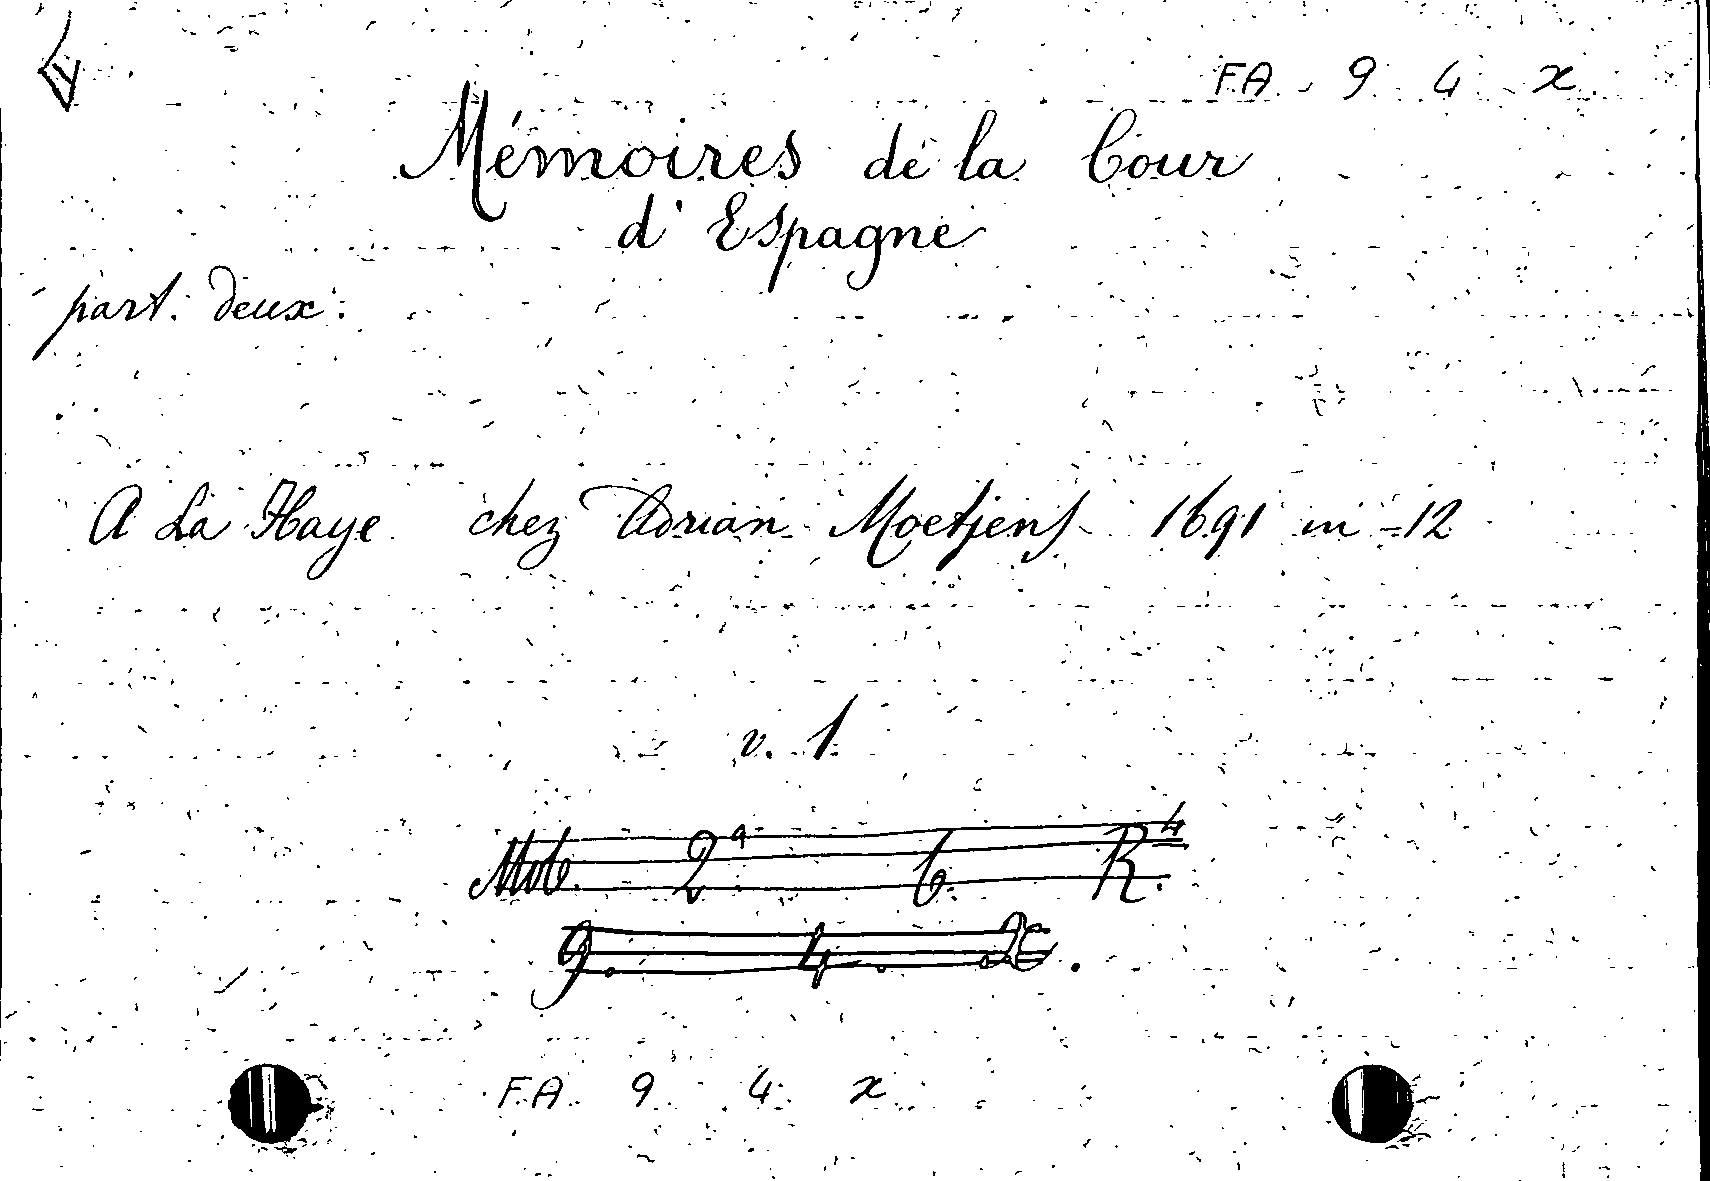 FA 9 4 x
Mémoires de la Cour
d'Espagne
part. deux.
A La Haye chez Adrian Moetjens 1691 in-12
v. 1
Mob. 2ª 6. R.4
9. 4.
FA 9 4 x